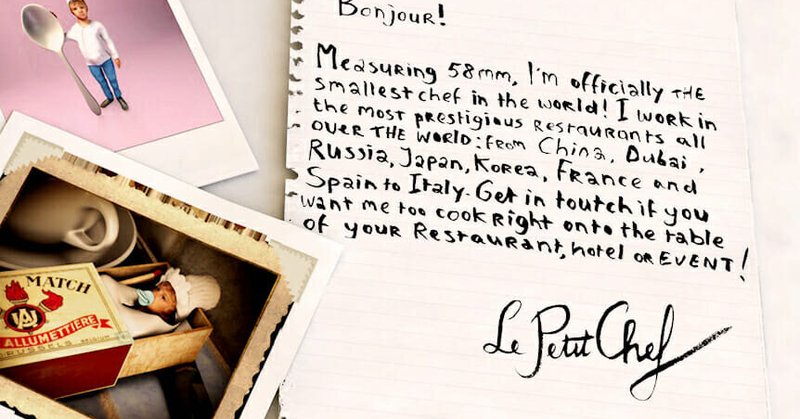 Bonjour!
Measuring 58mm, I'm officially THE
smallest chef in the world! I work in
the most prestigious RESTAURANTS all
OVER THE WORLD: from China, Dubai,
Russia, Japan, Korea, France and
Spain to Italy. Get in toutch if you
want me too cook Right onto the table
of your Restaurant, hotel or EVENT!
Le Petit Chef
MATCH
ALLUMETTIÈRE
BRUXELLES - UNION